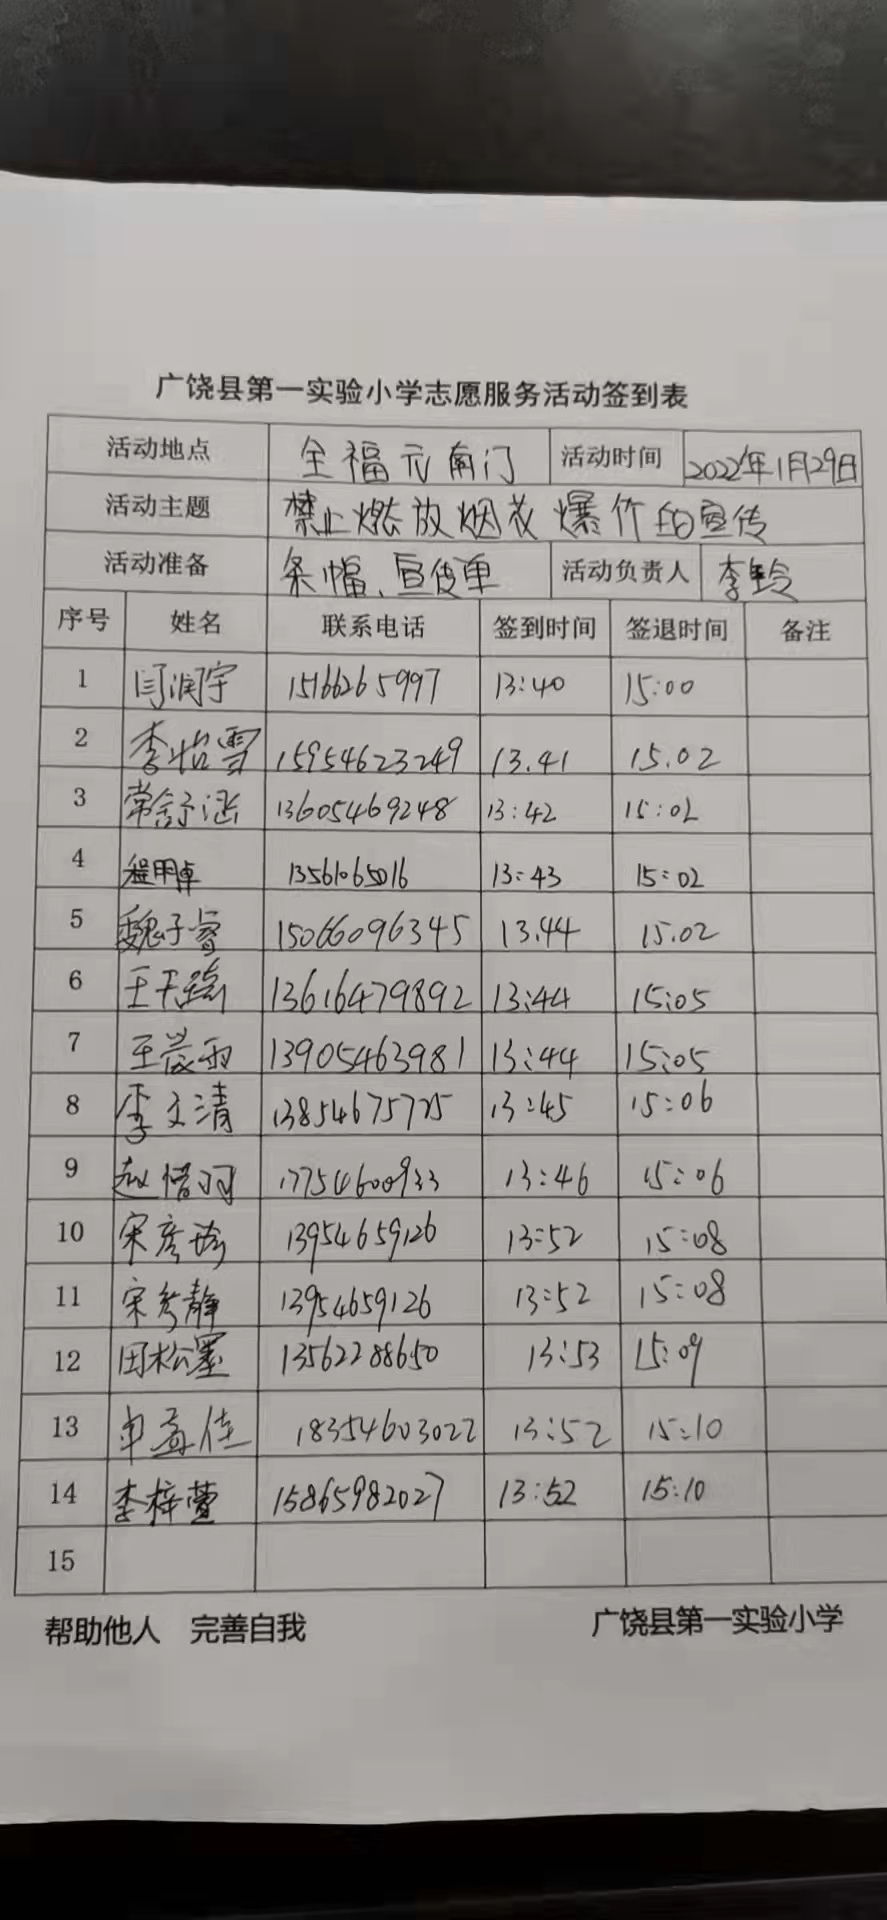 广饶县第一实验小学志愿服务活动签到表
活动地点 全福元南门 活动时间 2022年1月29日
活动主题 禁止燃放烟花爆竹的宣传
活动准备 条幅、宣传单 活动负责人 李玲
序号 姓名 联系电话 签到时间 签退时间 备注
1 闫润宇 15166265997 13:40 15:00
2 李怡雪 15954623249 13.41 15.02
3 常舒涵 13605469248 13:42 15:02
4 程明卓 13561065016 13:43 15:02
5 魏子睿 15066096345 13.44 15.02
6 13616479892 13:44 15:05
7 13905463981 13:44 15:05
8 李文清 13854675725 13:45 15:06
9 17754600933 13:46 15:06
10 13954659126 13:52 15:08
11 宋彦静 13954659126 13:52 15:08
12 田松墨 13562288650 13:53 15:09
13 18354603022 13:52 15:10
14 李梓萱 15865982027 13:52 15:10
15
帮助他人 完善自我 广饶县第一实验小学